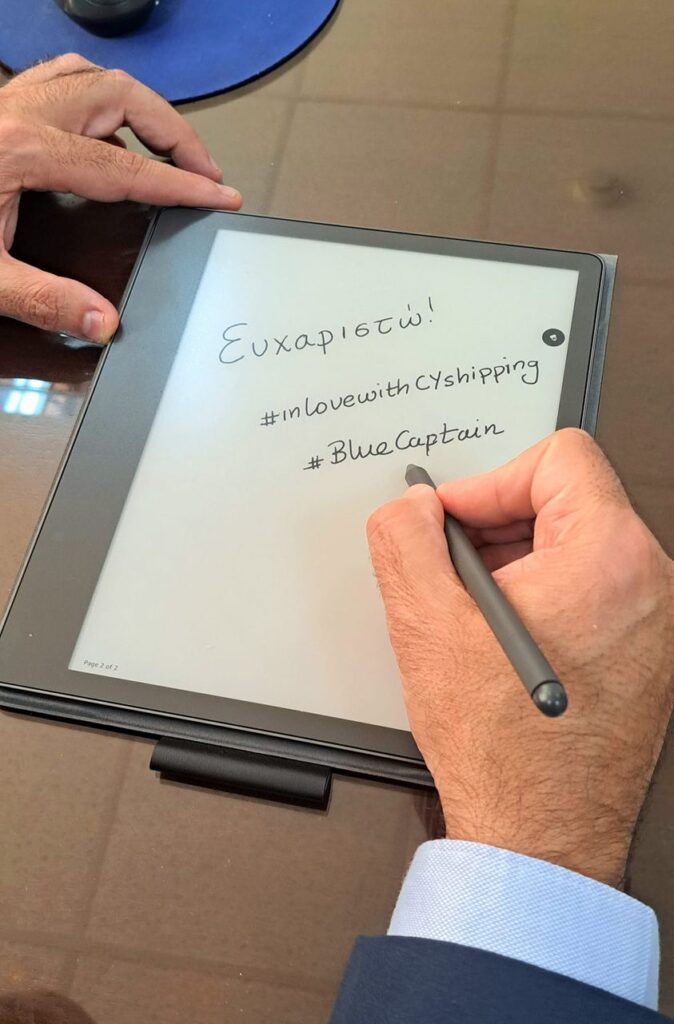 Ευχαριστώ!
#inlovewithCYshipping
#BlueCaptain
Page 2 of 2